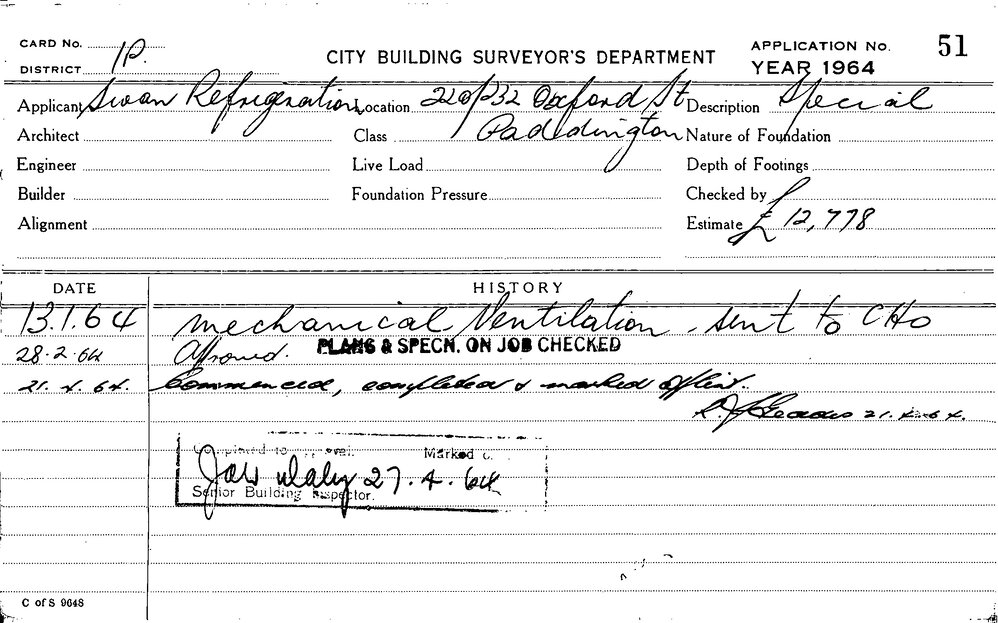 CARD No. APPLICATION No. 51
DISTRICT 1P. CITY BUILDING SURVEYOR'S DEPARTMENT YEAR 1964
Applicant Swan Refrigeration Location 220/232 Oxford St Description Special
Architect Class Paddington Nature of Foundation
Engineer Live Load Depth of Footings
Builder Foundation Pressure Checked by
Alignment Estimate £12,778
DATE HISTORY
13.1.64 Mechanical Ventilation. sent to CHO
28.2.64 Approved. PLANS & SPECN. ON JOB CHECKED
21.4.64. Commenced, completed & marked off list.
21.4.64.
Completed to approval. Marked o
27.4.64
Senior Building Inspector.
C of S 9648